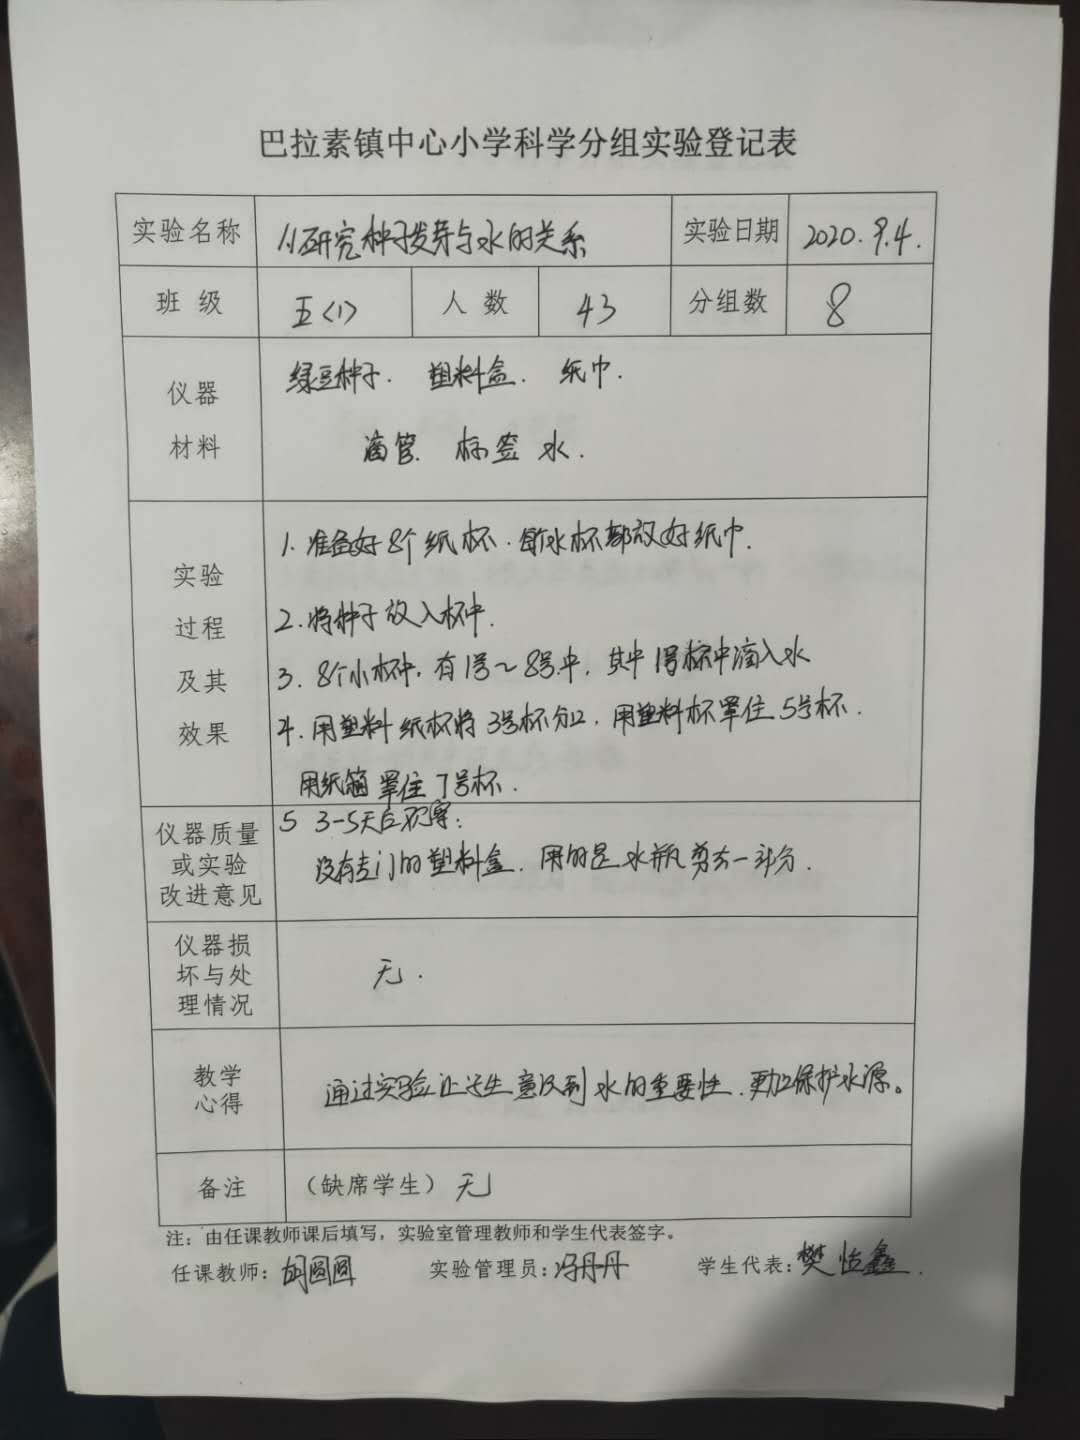 巴拉素镇中心小学科学分组实验登记表
实验名称 研究种子发芽与水的关系 实验日期 2020.9.4.
班 级 五<1> 人 数 43 分组数 8
仪器
材料
绿豆种子. 塑料盒. 纸巾.
滴管. 标签 水.
实验
过程
及其
效果
1. 准备好8个纸杯. 每个水杯都放好纸巾.
2. 将种子放入杯中.
3. 8个小杯中, 有1号～8号中, 其中1号杯中滴入水
4. 用塑料纸杯将3号杯分口, 用塑料杯罩住5号杯.
用纸箱罩住7号杯.
5 3-5天后观察:
仪器质量
或实验
改进意见
没有专门的塑料盒, 用的是水瓶剪去一部分.
仪器损
坏与处
理情况
无.
教学
心得
通过实验让学生意识到水的重要性, 更加保护水源。
备注 （缺席学生） 无
注：由任课教师课后填写，实验室管理教师和学生代表签字。
任课教师: 胡圆圆 实验管理员: 冯丹丹 学生代表: 樊怡鑫.